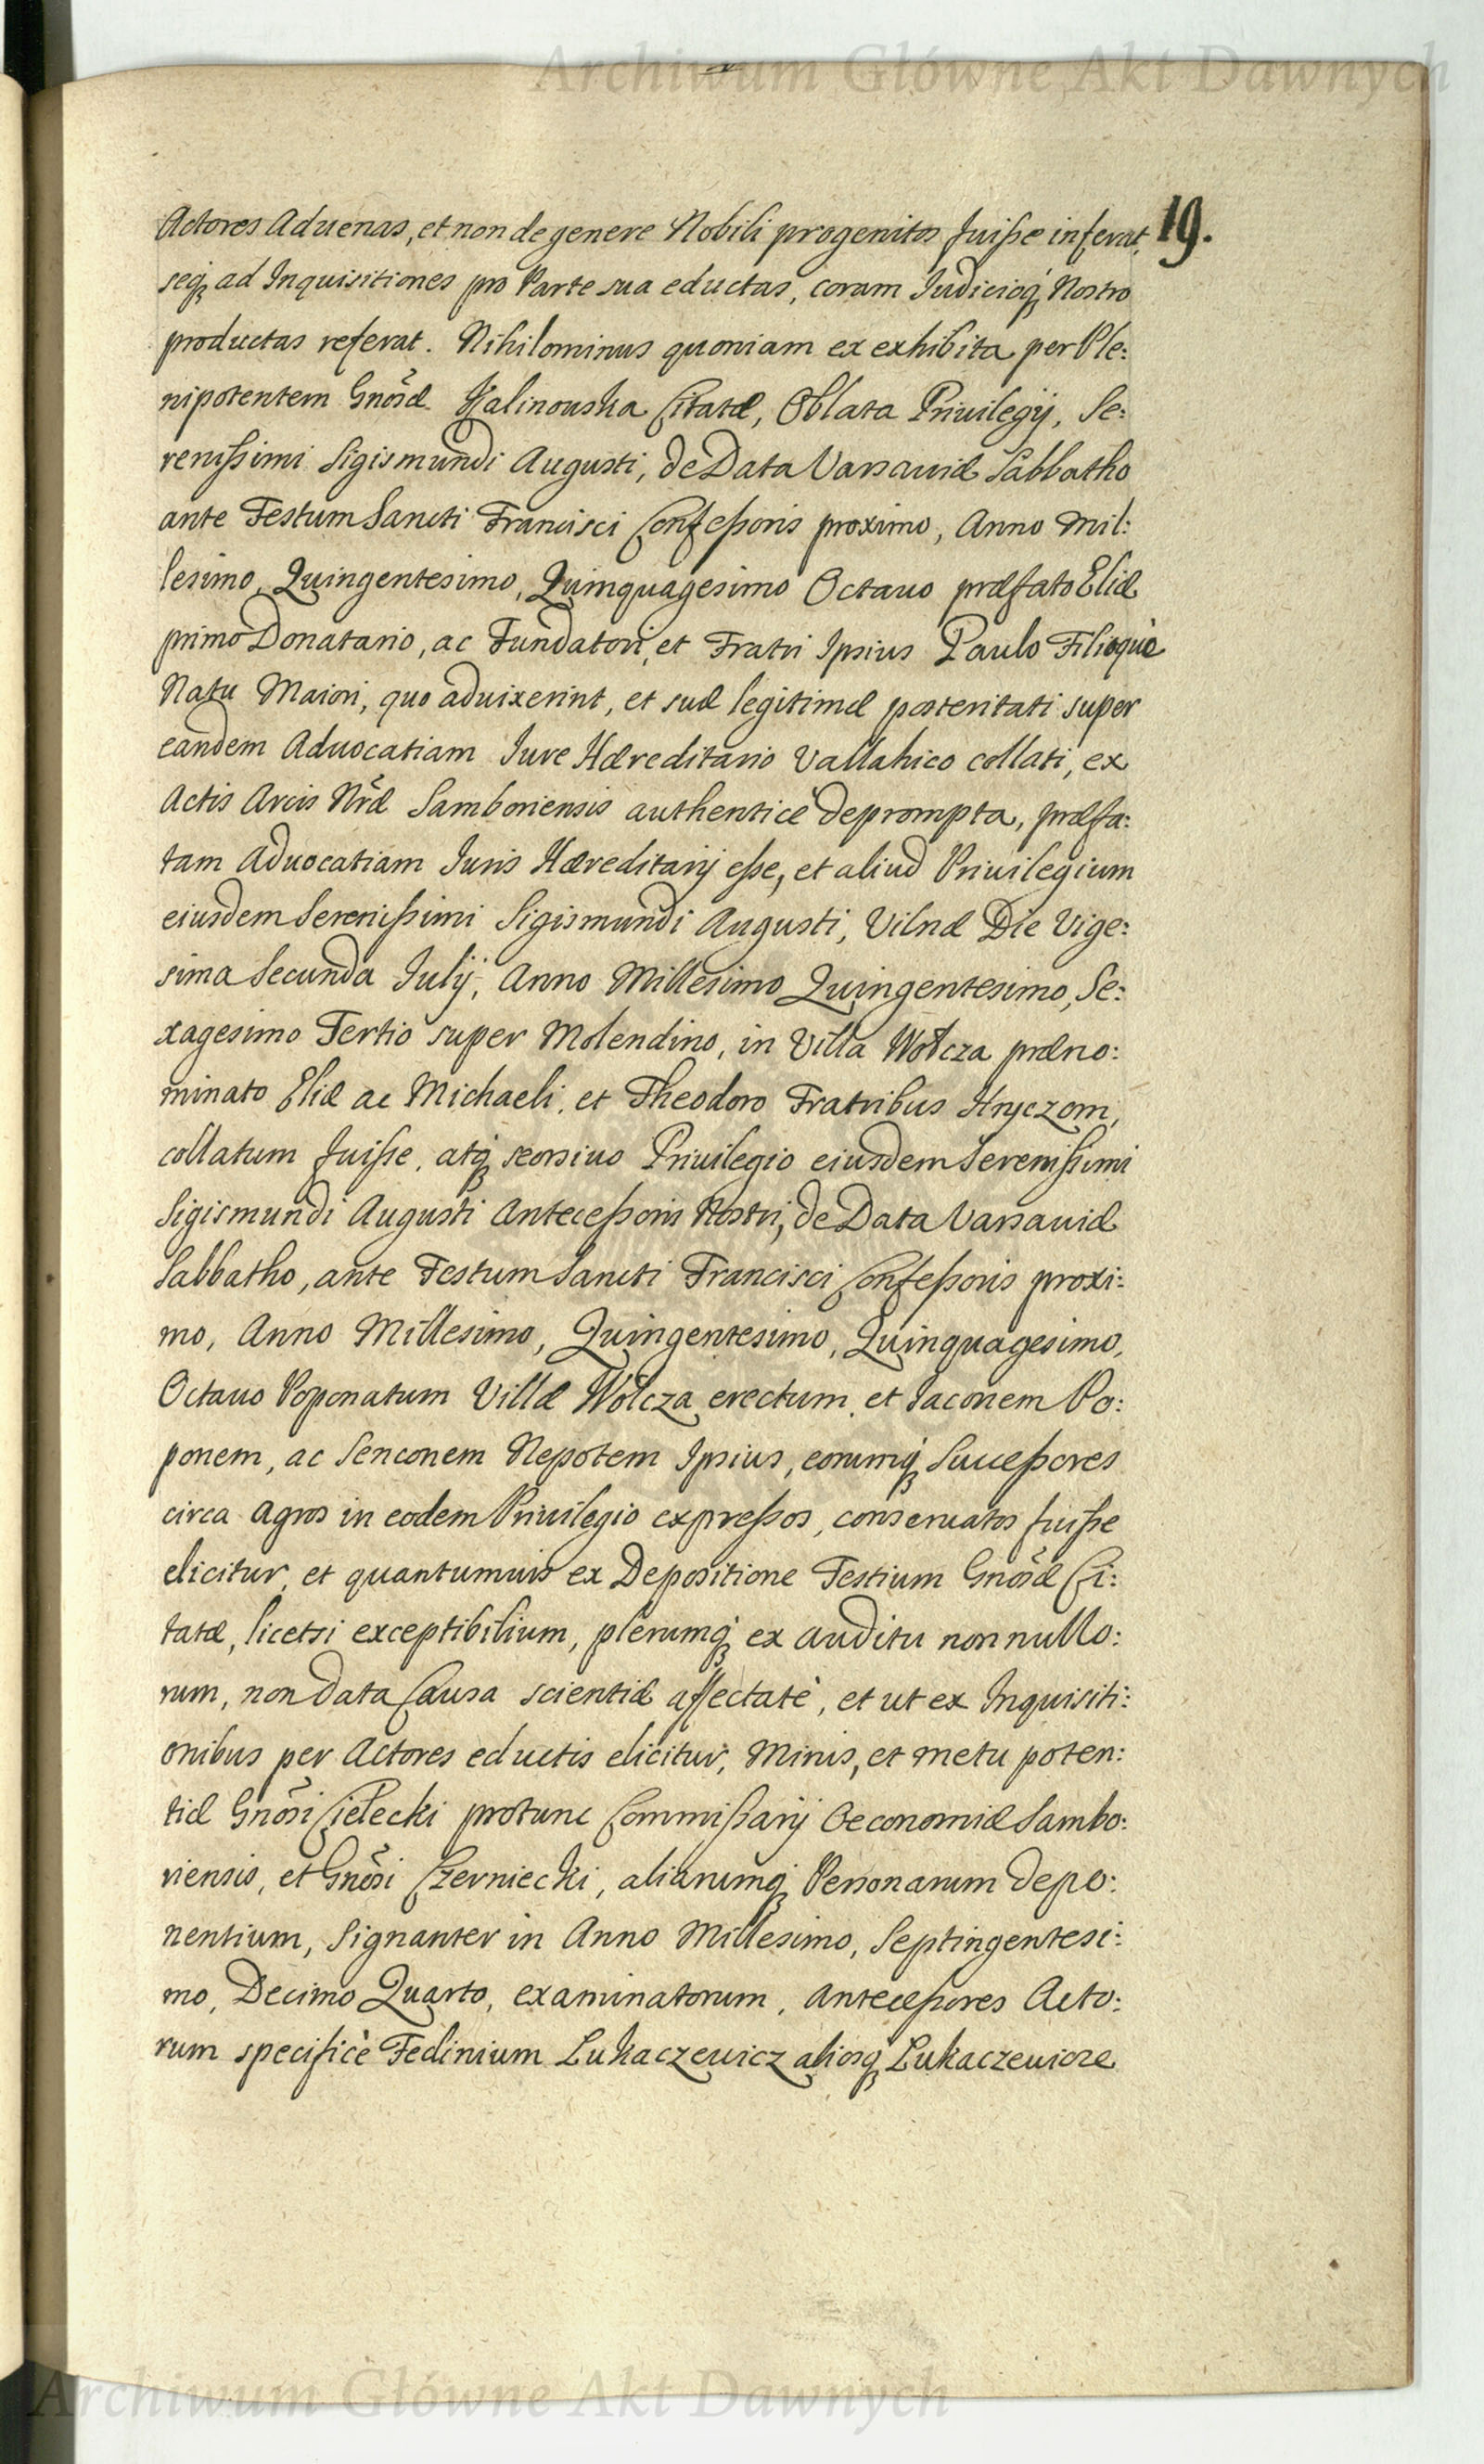 Archiwum Główne Akt Dawnych
19.
Actores Aduenas, et non de genere Nobili progenitos fuiſse inferat,
seq́ꝫ ad Inquisitiones pro Parte sua eductas, coram Iudicioq́ꝫ Nostro
productas referat. Nihilominus quoniam ex exhibita per Ple:
nipotentem Gnõsæ Kalinouska Citatæ, Oblata Priuilegij, Se:
reniſsimi Sigismundi Augusti, de Data Varsauiæ Sabbatho
ante Festum Sancti Francisci Confeſsoris proximo, Anno Mil:
lesimo, Quingentesimo, Quinquagesimo Octauo præfato Eliæ
primo Donatario, ac Fundatori, et Fratri Ipsius Paulo Filioque
Natu Maiori, quo aduixerint, et suæ legitimæ posteritati super
eandem Aduocatiam Iure Hæreditario Vallahico collati, ex
Actis Arcis Nr̃æ Samboriensis authenticè deprompta, præfa:
tam Aduocatiam Iuris Hæreditarij eſse, et aliud Priuilegium
eiusdem Sereniſsimi Sigismundi Augusti, Vilnæ Die Vige:
sima Secunda Iulij, Anno Millesimo Quingentesimo, Se:
xagesimo Tertio super Molendino, in Villa Wołcza præno:
minato Eliæ ac Michaeli, et Theodoro Fratribus Hryczom,
collatum fuiſse, atq́ꝫ seorsiuo Priuilegio eiusdem Sereniſsimi
Sigismundi Augusti Anteceſsoris Nostri, de Data Varsauiæ
Sabbatho, ante Festum Sancti Francisci Confeſsoris proxi:
mo, Anno Millesimo, Quingentesimo, Quinquagesimo,
Octauo Poponatum Villæ Wołcza erectum, et Iaconem Po:
ponem, ac Senconem Nepotem Ipsius, eorumq́ꝫ Succeſsores
circa Agros in eodem Priuilegio expreſsos, conseruatos fuiſse
elicitur, et quantumuis ex Depositione Testium Gnõsæ Ci:
tatæ, licetsi exceptibilium, plerumq́ꝫ ex auditu nonnullo:
rum, non data Causa scientiæ affectatè, et ut ex Inquisiti:
onibus per Actores eductis elicitur, Minis, et metu poten:
tiæ Gnõsi Cielecki protunc Commiſsarij Oeconomiæ Sambo:
riensis, et Gnõsi Czerniecki, aliarumq́ꝫ Personarum depo:
nentium, Signanter in Anno Millesimo, Septingentesi:
mo, Decimo Quarto, examinatorum, Anteceſsores Acto:
rum specificè Fedinium Lukaczewicz aliosq́ꝫ Lukaczewicze
Archiwum Główne Akt Dawnych